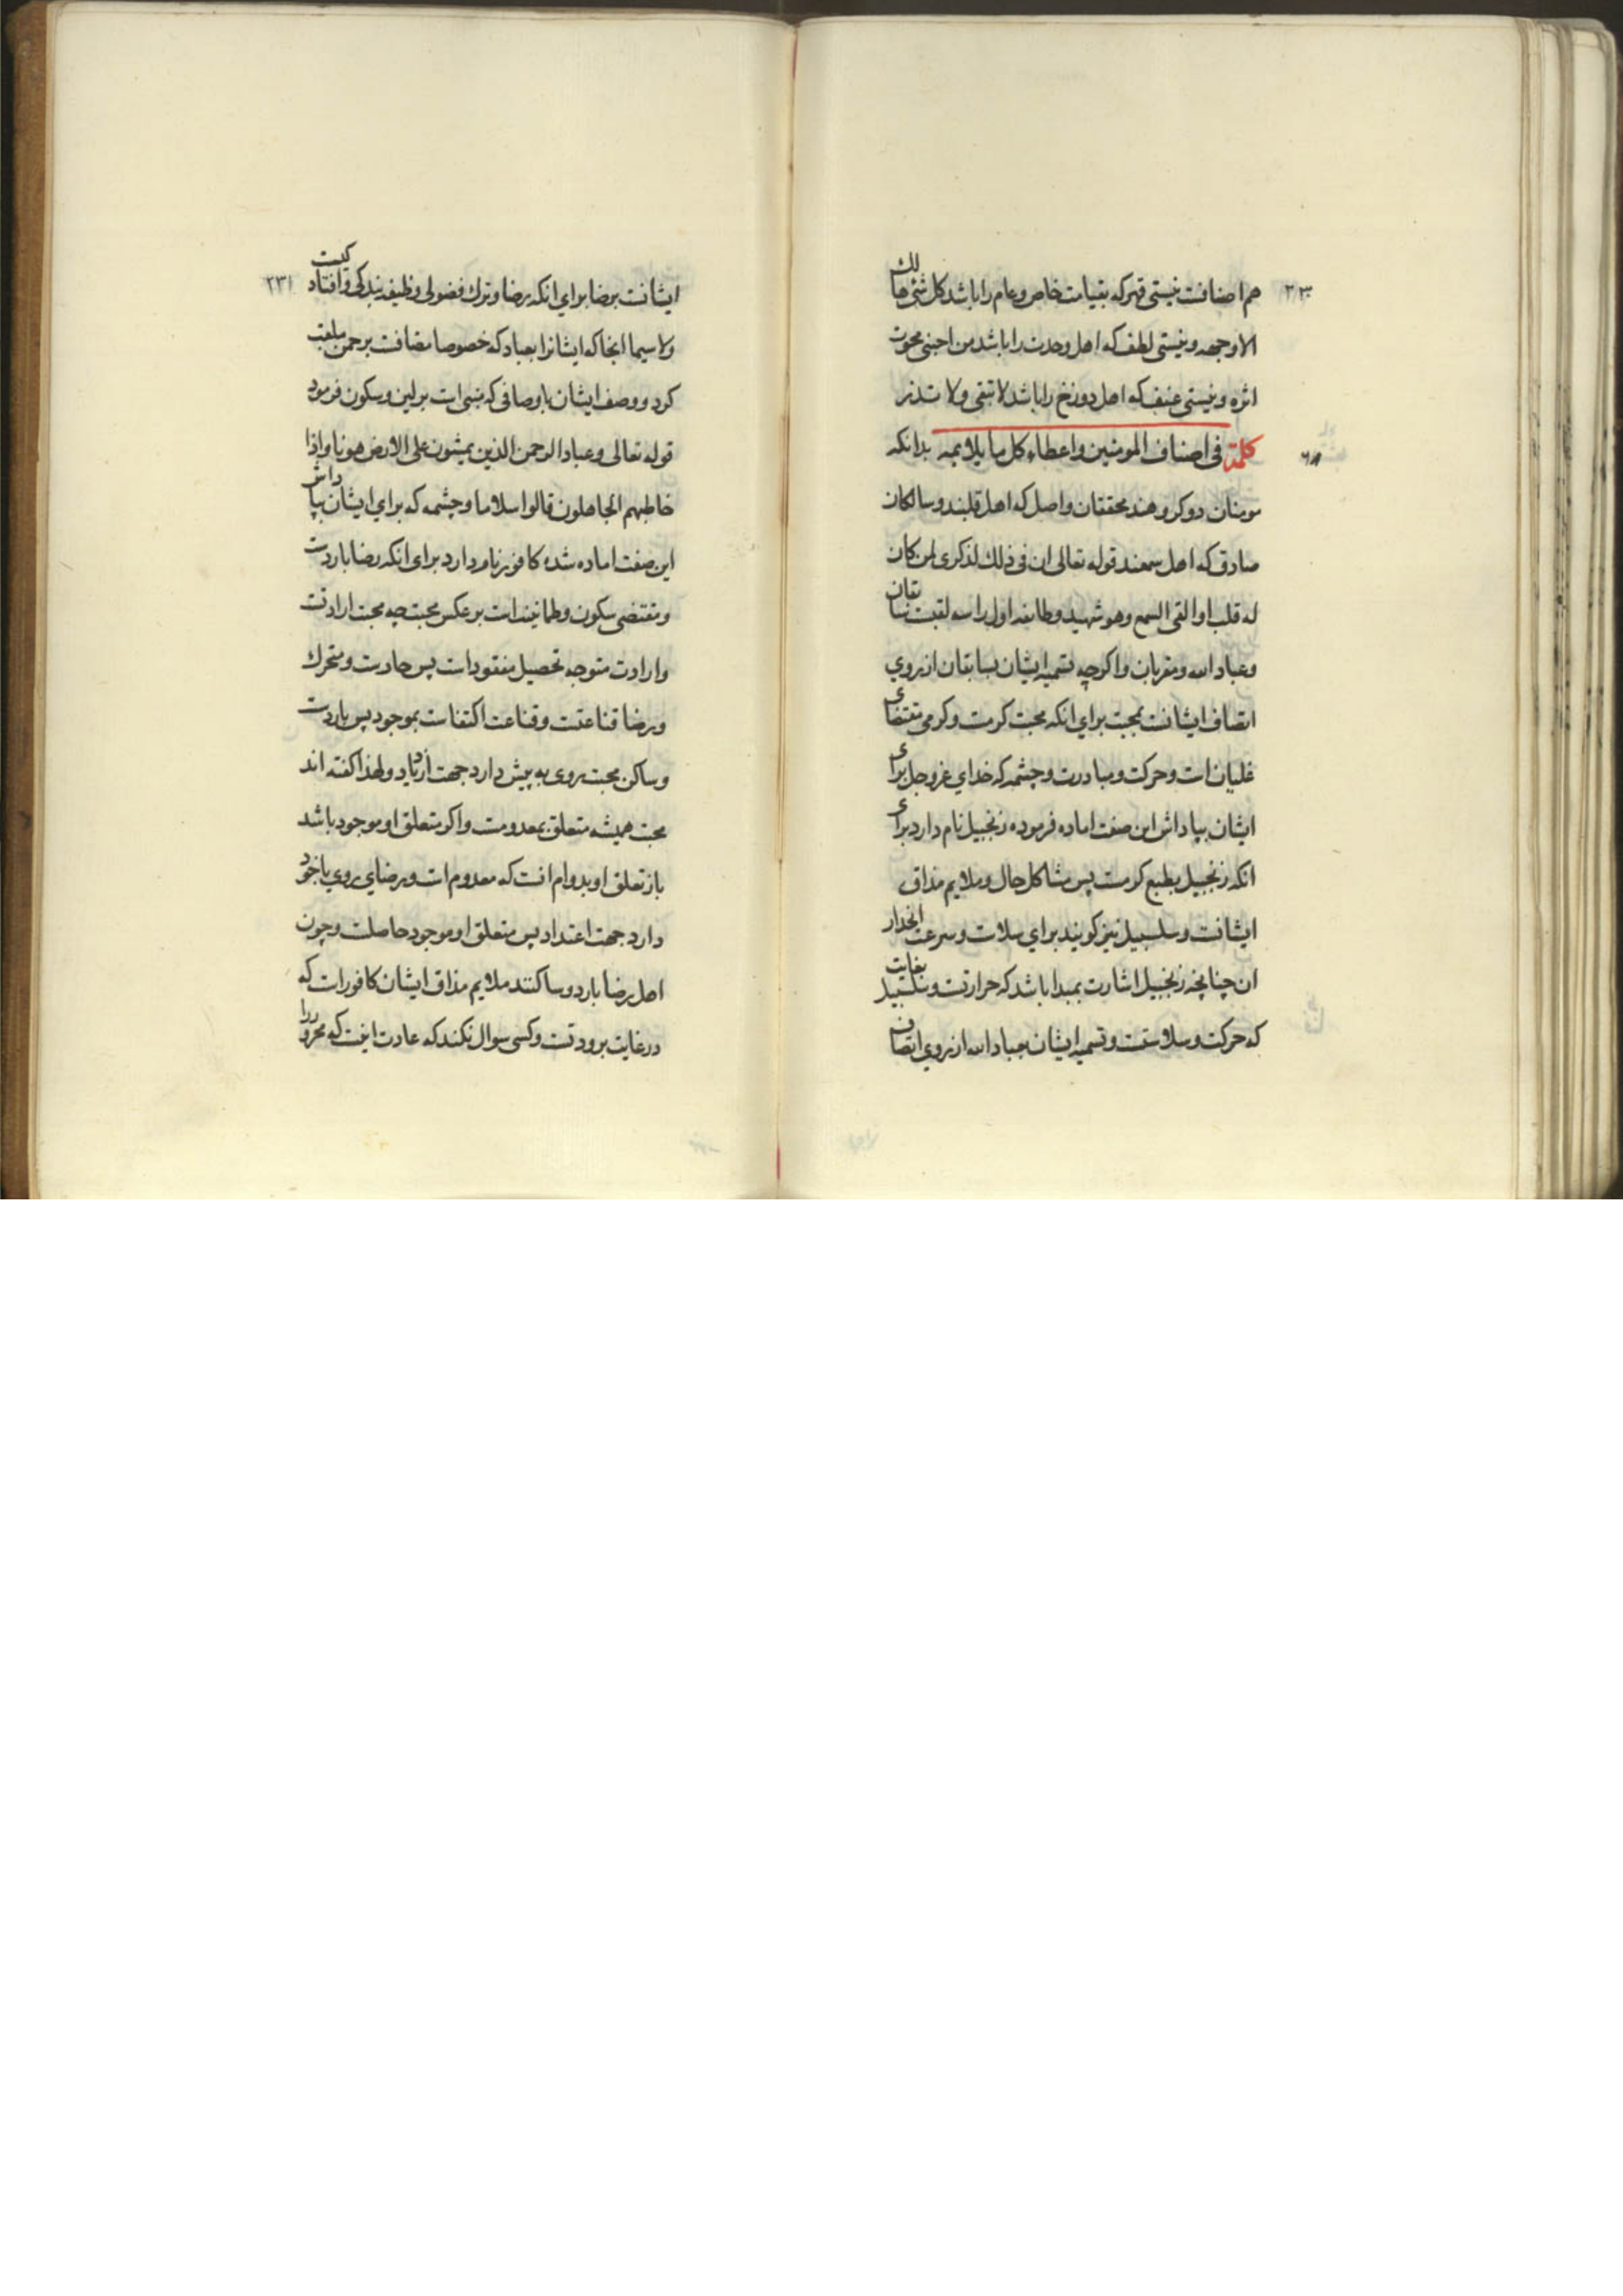 ۲۳۰
هم اصنافست نیستی قهر که بقیامت خاص و عام را باشد کل شئ هالك
الا وجهه و نیستی لطف که اهل وحدت را باشد من احبنی محوت
اثره و نیستی عنف که اهل دوزخ را باشد لا تبقی ولا تذر
کلمة فی اصناف المومنین واعطاء کل ما یلایمه بدانکه
مومنان دو کروهند محققان واصل که اهل قلبند و سالکان
صادق که اهل سمعند قوله تعالی ان فی ذلك لذکری لمن کان
له قلب او القی السمع وهو شهید و طایفه اول را سه لقبست سابقان
و عباد الله و مقربان و اکرچه تسمیه ایشان بسابقان از روی
اتصاف ایشانست بمحبت برای انکه محبت کرمست و کرمی مقتضای
غلیان است و حرکت و مبادرت و چشمه که خدای عزوجل برای
ایشان بپاداش این صفت اماده فرموده زنجبیل نام دارد برای
انکه زنجبیل بطبع کرمست پس مشاکل حال و ملایم مذاق
ایشانست و سلسبیل نیز کویند برای سلاست و سرعت انحدار
ان چنانچه زنجبیل اشارت بمبدا باشد که حرارتست و سلسبیل بغایت
که حرکت و سلاستست و تسمیه ایشان بعباد الله از روی اتصاف
۲۳۱
ایشانست برضا برای انکه رضا و ترك فضولی وظیفه بندکی و افتادکیست
ولا سیما انجا که ایشانرا بعباد که خصوصا مضافست برحمن ملقب
کرد و وصف ایشان باوصافی که مبنی است بر لین و سکون فرمود
قوله تعالی وعباد الرحمن الذین یمشون علی الارض هونا واذا
خاطبهم الجاهلون قالوا سلاما و چشمه که برای ایشان بپاداش
این صفت اماده شده کافور نام دارد برای انکه رضا باردست
و مقتضی سکون و طمانینه است بر عکس محبت چه محبت ارادتست
و ارادت متوجه تحصیل مفقود است پس حارست و متحرك
و رضا قناعتست و قناعت اکتفاست بموجود پس باردست
و ساکن محبت روی به پیش دارد جهت ازدیاد و لهذا کفته اند
محبت همیشه متعلق بمعدومست و اکر متعلق او موجود باشد
باز تعلق او بدوام انست که معدوم است و رضای روی باخود
دارد جهت اعتداد پس متعلق او موجود حاصلست و چون
اهل رضا بارد و ساکنند ملایم مذاق ایشان کافور است که
در غایت برودتست و کسی سوال نکند که عادت اینست که محرور را